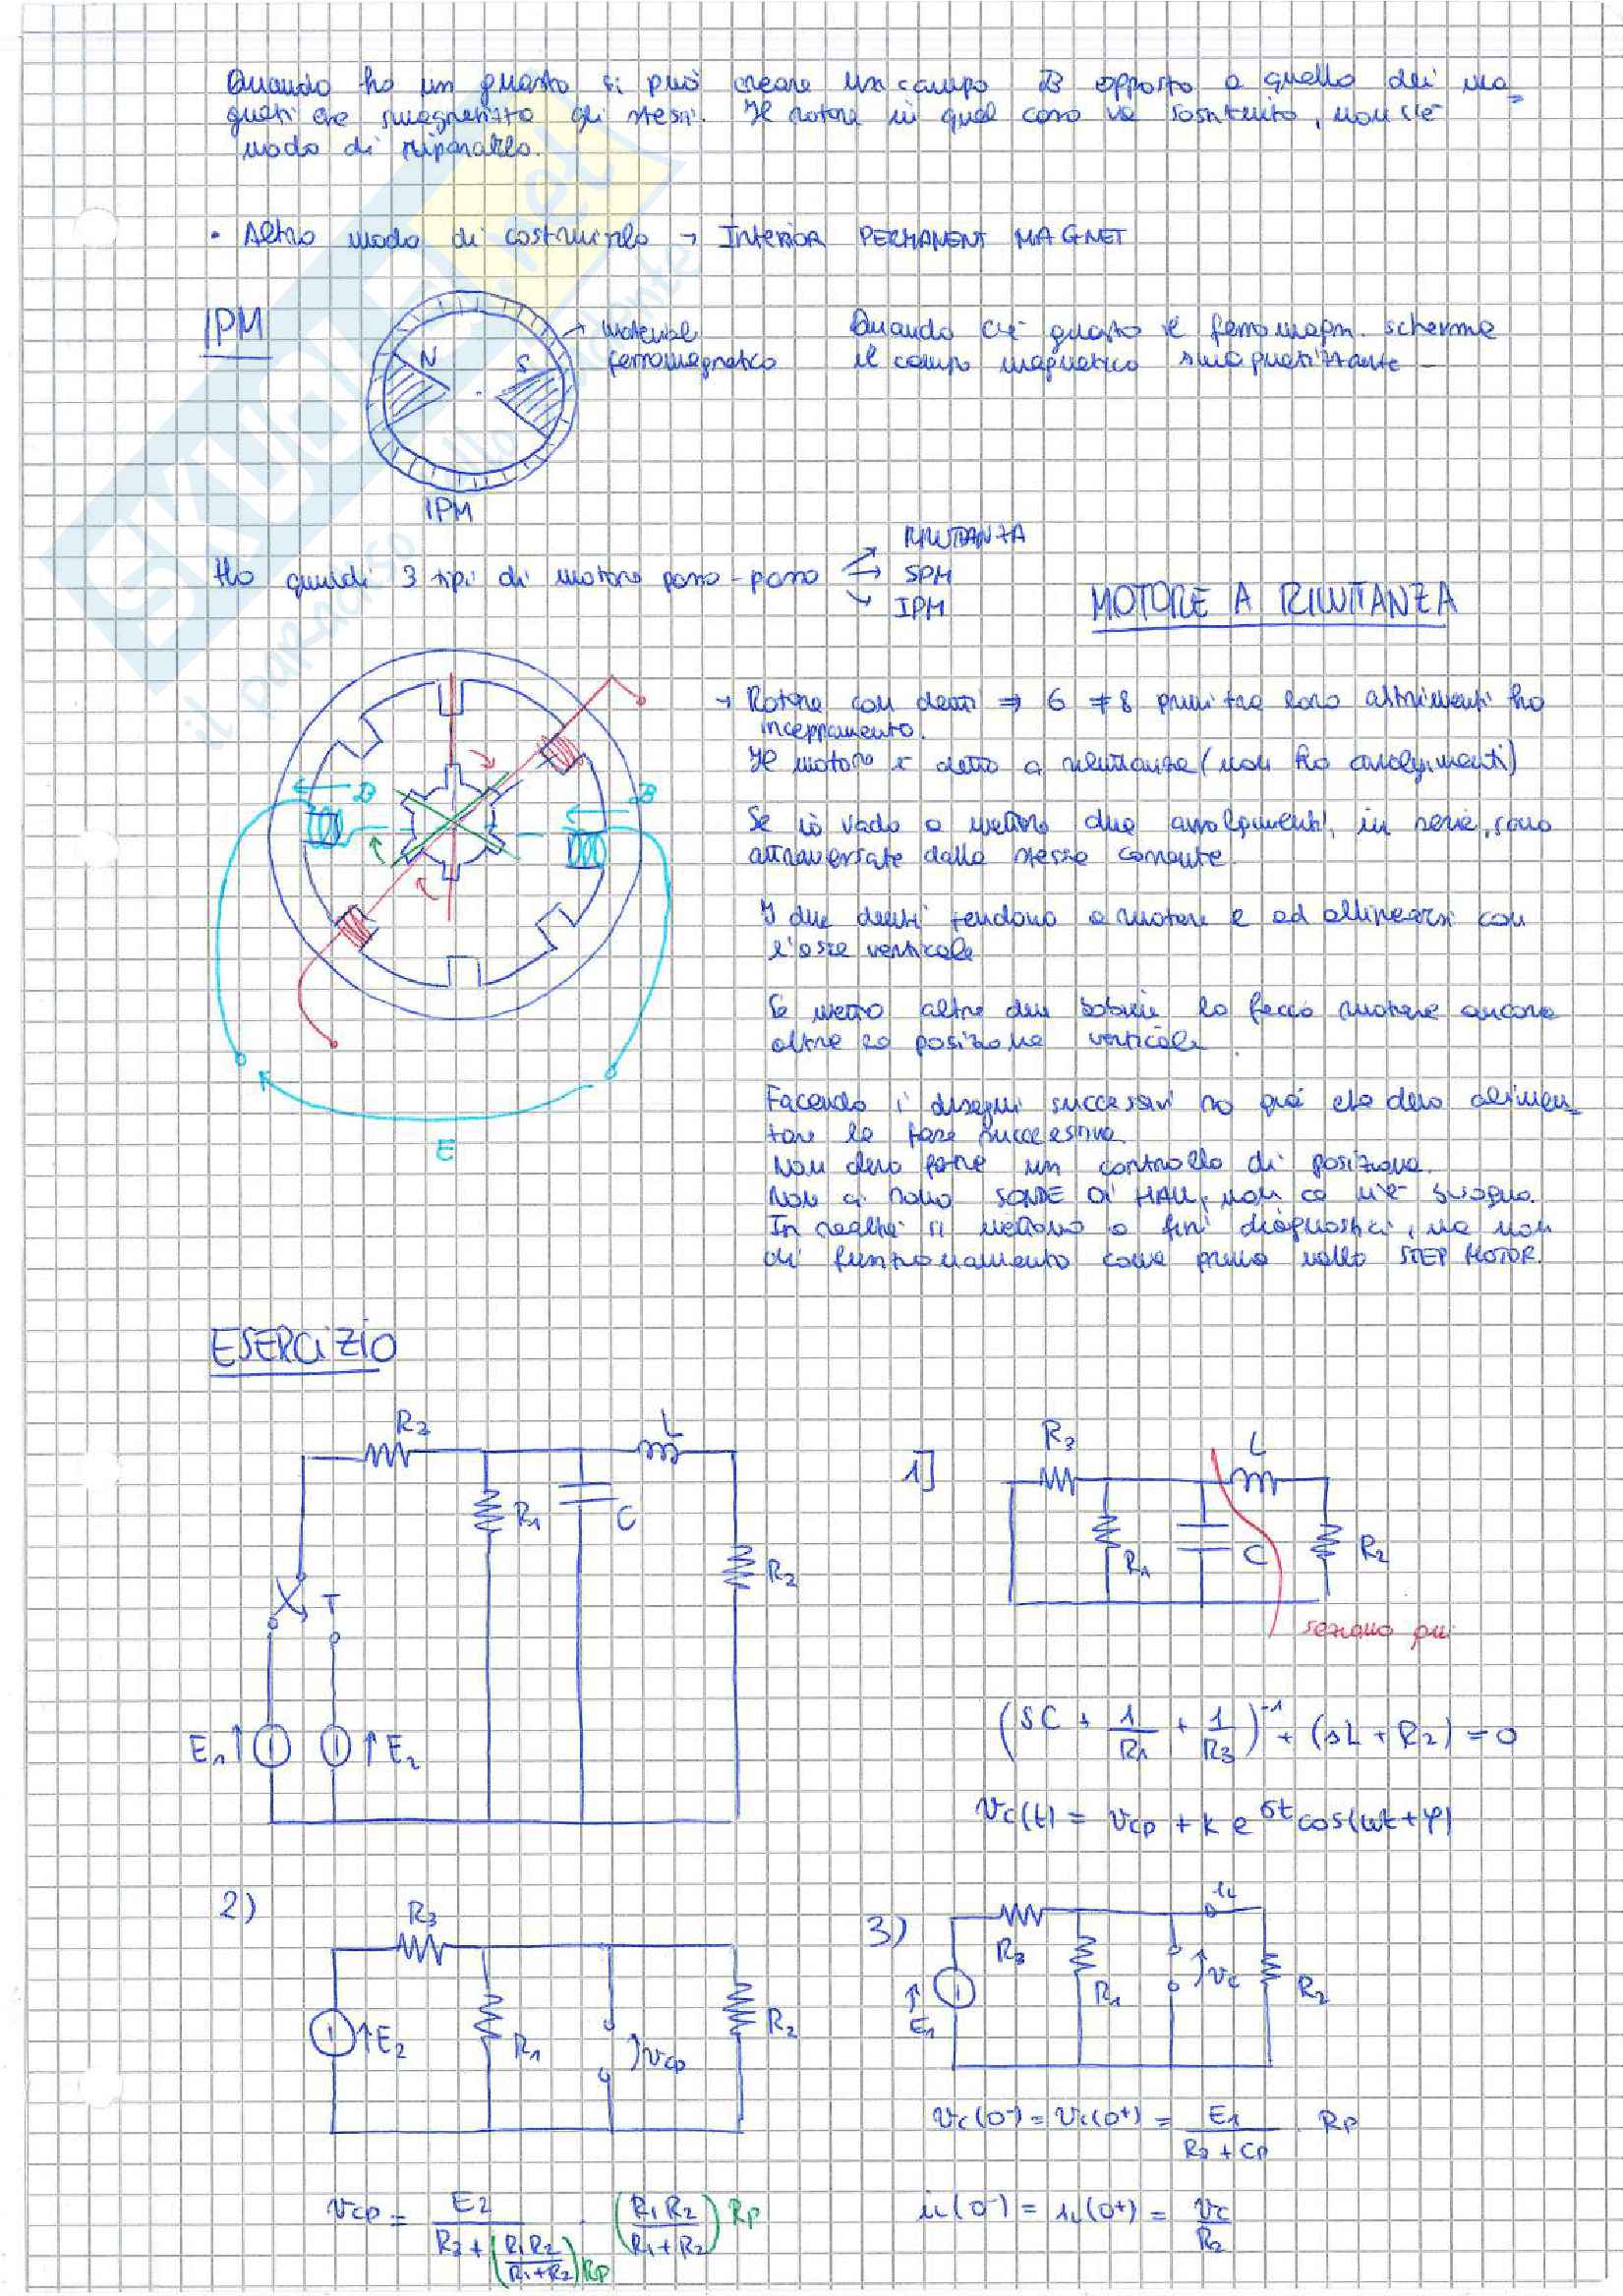 Quando ho un guasto si può creare un campo B opposto a quello dei ma-
gneti che smagnetizza gli stessi. Il rotore in quel caso va sostituito, non c'è
modo di ripararlo.
• Altro modo di costruirlo → INTERIOR PERMANENT MAGNET
IPM
N
S
material
ferromagnetico
Quando c'è guasto il ferromagn. scherma
il campo magnetico smagnetizzante
IPM
Ho quindi 3 tipi di motore passo-passo
RILUTTANZA
SPM
IPM
MOTORE A RILUTTANZA
→ Rotore con denti ⇒ 6 ≠ 8 primi tra loro altrimenti ho
inceppamento.
Il motore è detto a riluttanza (non ho avvolgimenti)
Se io vado a mettere due avvolgimenti, in serie, sono
attraversate dalla stessa corrente.
I due denti tendono a ruotare e ad allinearsi con
l'asse verticale
Se metto altre due bobine lo faccio ruotare ancora
oltre la posizione verticale.
Facendo i disegni successivi so già che devo alimen-
tare la fase successiva.
Non devo fare un controllo di posizione.
Non ci sono SONDE DI HALL, non ce n'è bisogno.
In realtà si mettono a fini diagnostici, ma non
di funzionamento come prima nello STEP MOTOR.
B
B
E
ESERCIZIO
R3
L
R1
C
R2
T
E1
E2
1]
R3
L
R1
C
R2
seziono qui
(SC + 1/R1 + 1/R3)^-1 + (sL + R2) = 0
vc(t) = vcp + k e^σt cos(ωt+φ)
2)
R3
E2
R1
vcp
R2
vcp = E2 / (R3 + (R1R2 / R1+R2) Rp) · (R1R2 / R1+R2) Rp
3)
iL
R3
E1
R1
vc
R2
vc(0-) = vc(0+) = E1 / (R3 + Cp) · Rp
iL(0-) = iL(0+) = vc / R2
SKUOLA.net
il paradiso dello studente